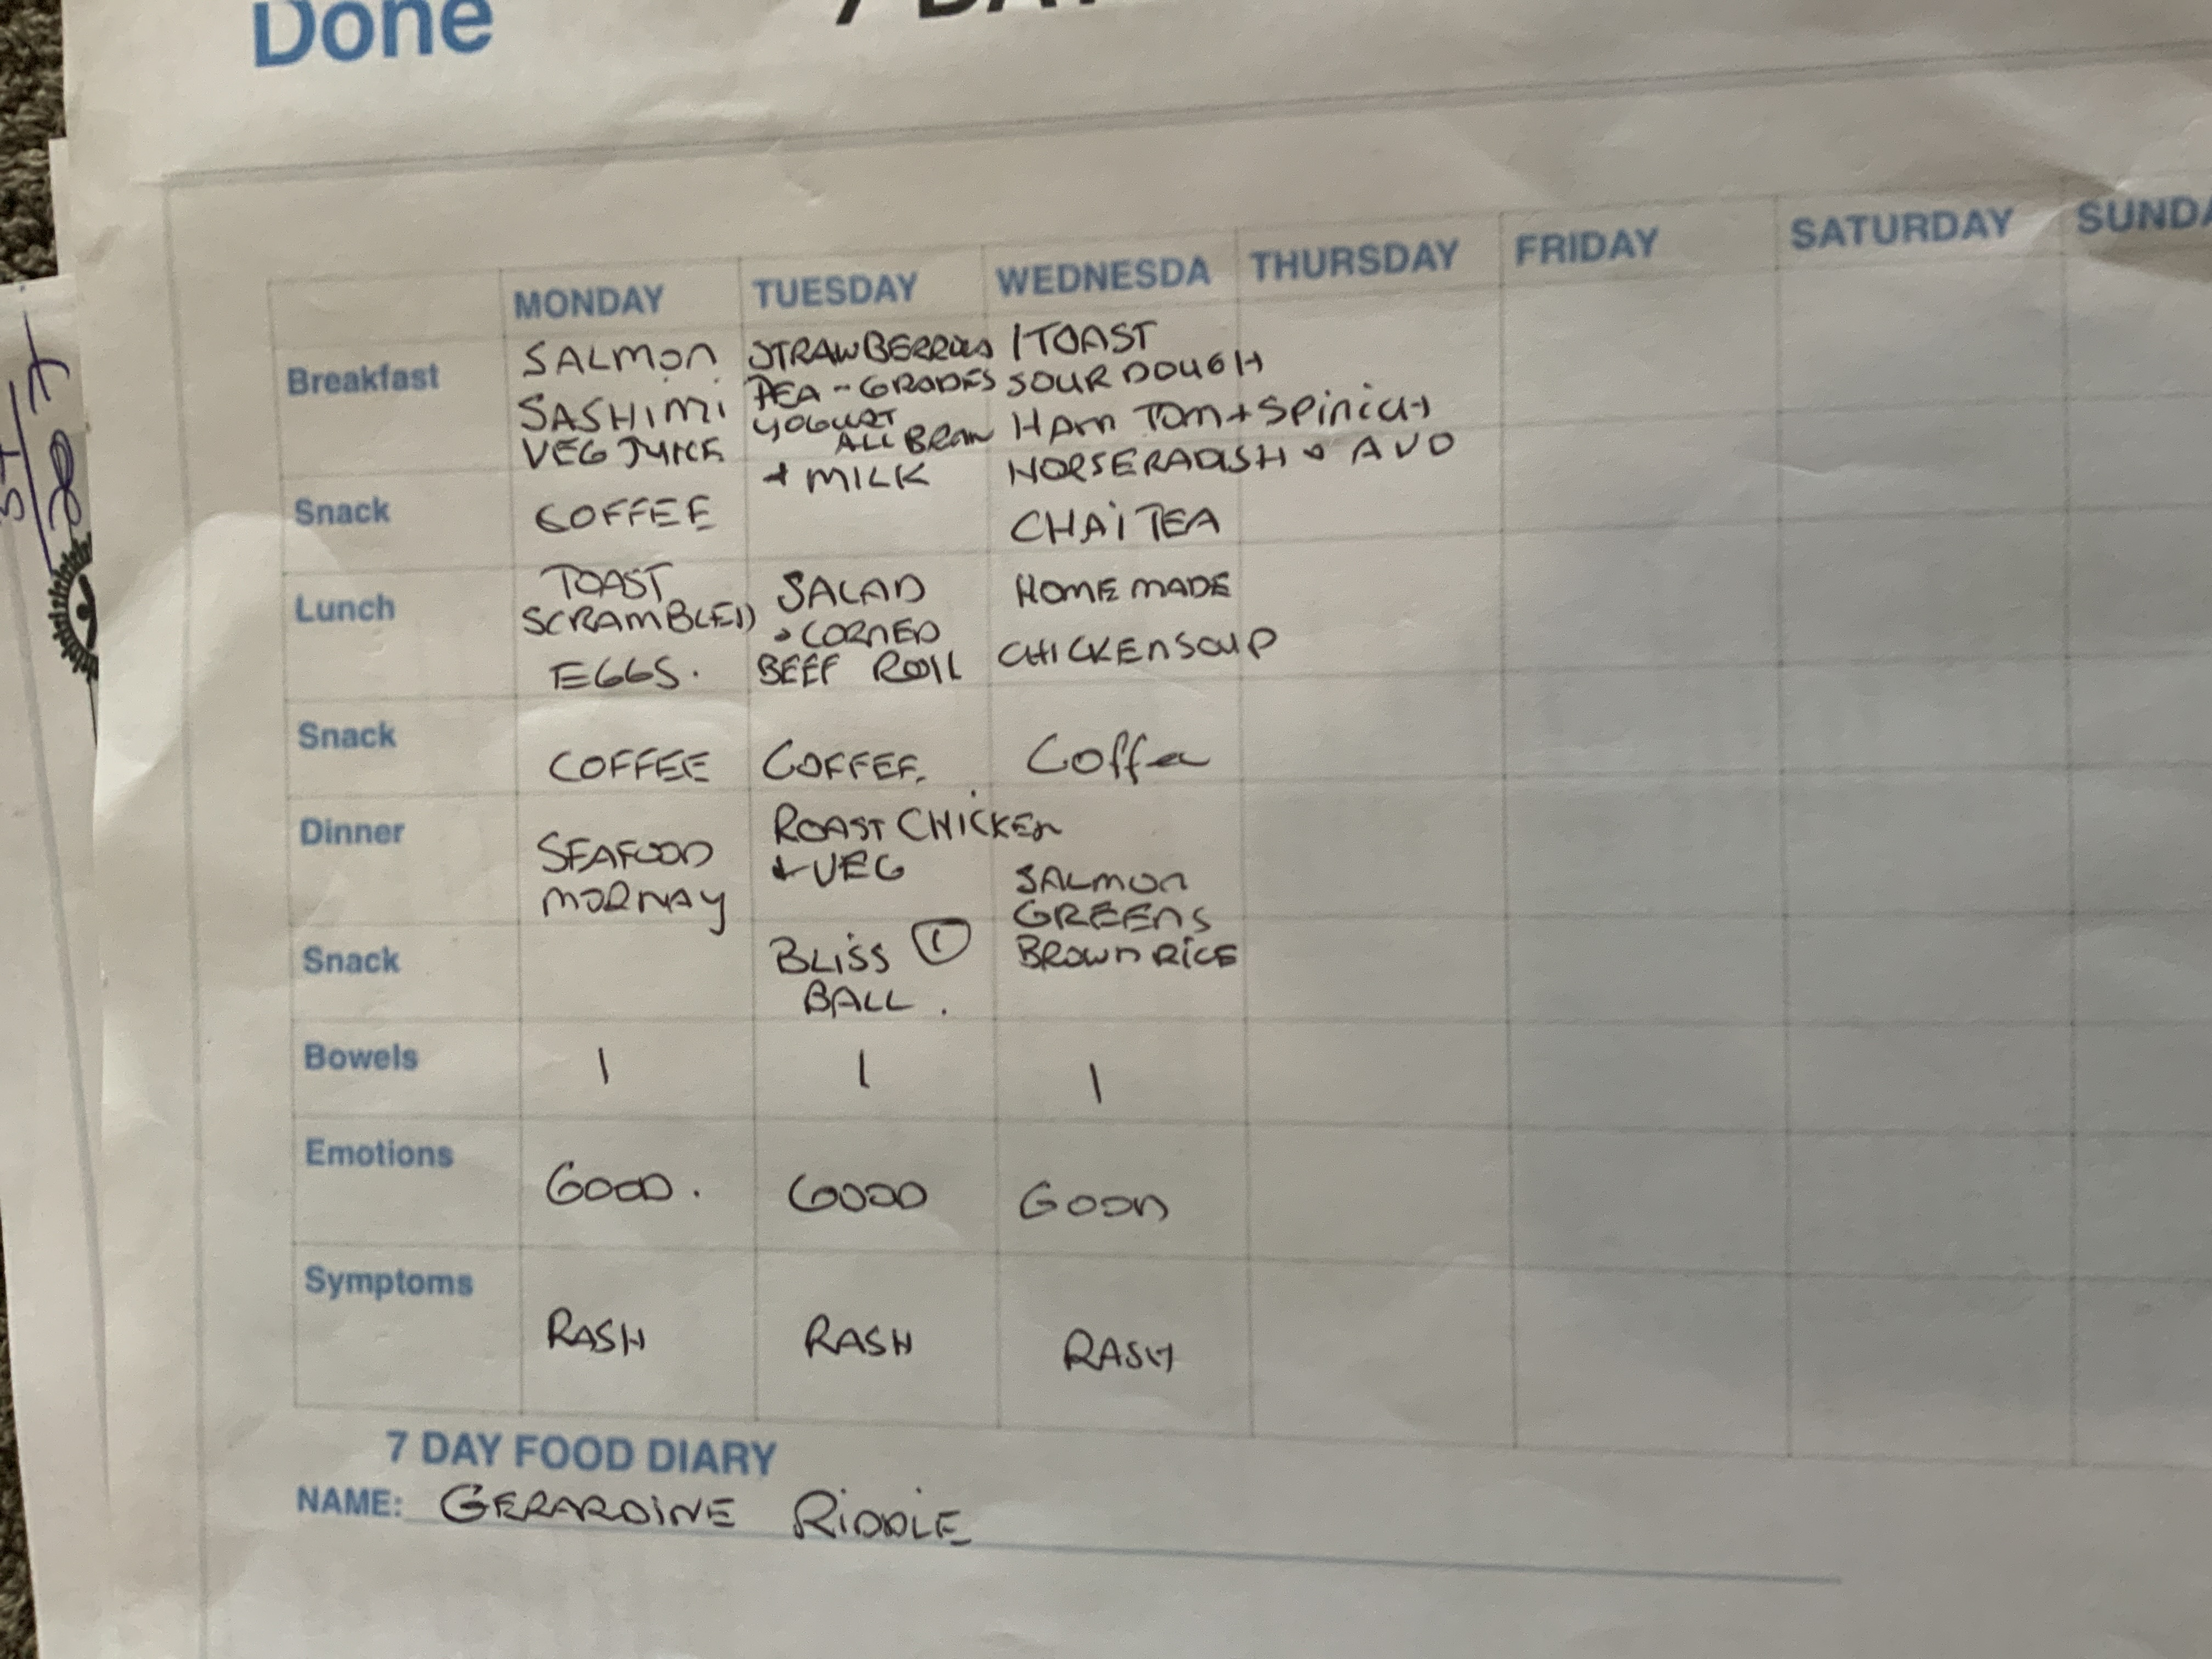 Done
7 DAY
MONDAY TUESDAY WEDNESDA THURSDAY FRIDAY SATURDAY SUNDA
Breakfast
SALMON
SASHIMI
VEG JUICE
STRAWBERRIES
YOGURT
ALL BRAN
+ MILK
1 TOAST
SOURDOUGH
HAM TOM + SPINICH
HORSERADISH + AVO
Snack
COFFEE
CHAI TEA
Lunch
TOAST
SCRAMBLED
EGGS.
SALAD
+ CORNED
BEEF ROLL
HOME MADE
CHICKEN SOUP
Snack
COFFEE
COFFEE.
Coffee
Dinner
SEAFOOD
MORNAY
ROAST CHICKEN
+ VEG
SALMON
GREENS
BROWN RICE
Snack
BLISS 1
BALL.
Bowels
1 1 1
Emotions
GOOD. GOOD GOOD
Symptoms
RASH RASH RASH
7 DAY FOOD DIARY
NAME: GERARDINE RIDDLE